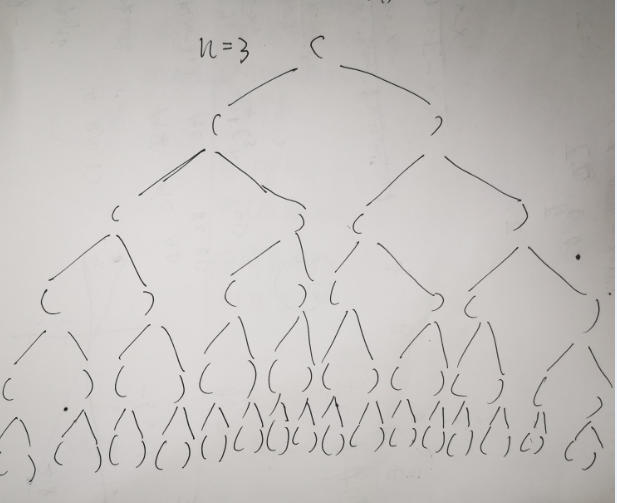 n=3 (
( )
( ) ( )
( ) ( ) ( ) ( )
( ) ( ) ( ) ( ) ( ) ( ) ( ) ( )
( ) ( ) ( ) ( ) ( ) ( ) ( ) ( ) ( ) ( ) ( ) ( ) ( ) ( ) ( ) ( )